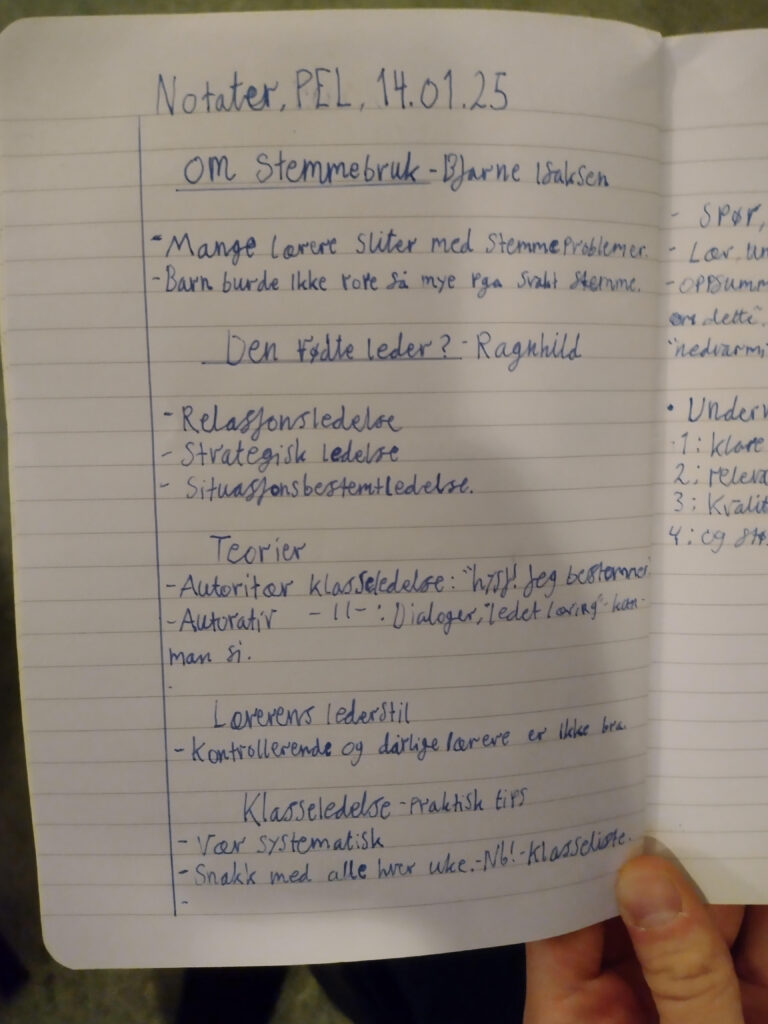 Notater, PEL, 14.01.25
Om Stemmebruk - Bjarne Isaksen
- Mange lærere sliter med stemmeproblemer.
- Barn burde ikke rope så mye pga svakt stemme.
Den fødte leder? - Ragnhild
- Relasjonsledelse
- Strategisk ledelse
- Situasjonsbestemtledelse.
Teorier
- Autoritær klasseledelse: "hysj! Jeg bestemmer"
- Autorativ -11-: Dialoger, "ledet læring" - kan
man si.
Lærerens lederstil
- Kontrollerende og dårlige lærere er ikke bra
Klasseledelse - praktisk tips
- Vær systematisk
- Snakk med alle hver uke. - Nb! - Klasseliste.
-
- Spør,
- Lær
- Oppsumm
om dette.
"nedvarmi
• Underv
1: klare
2: releva
3: Kvalit
4: og